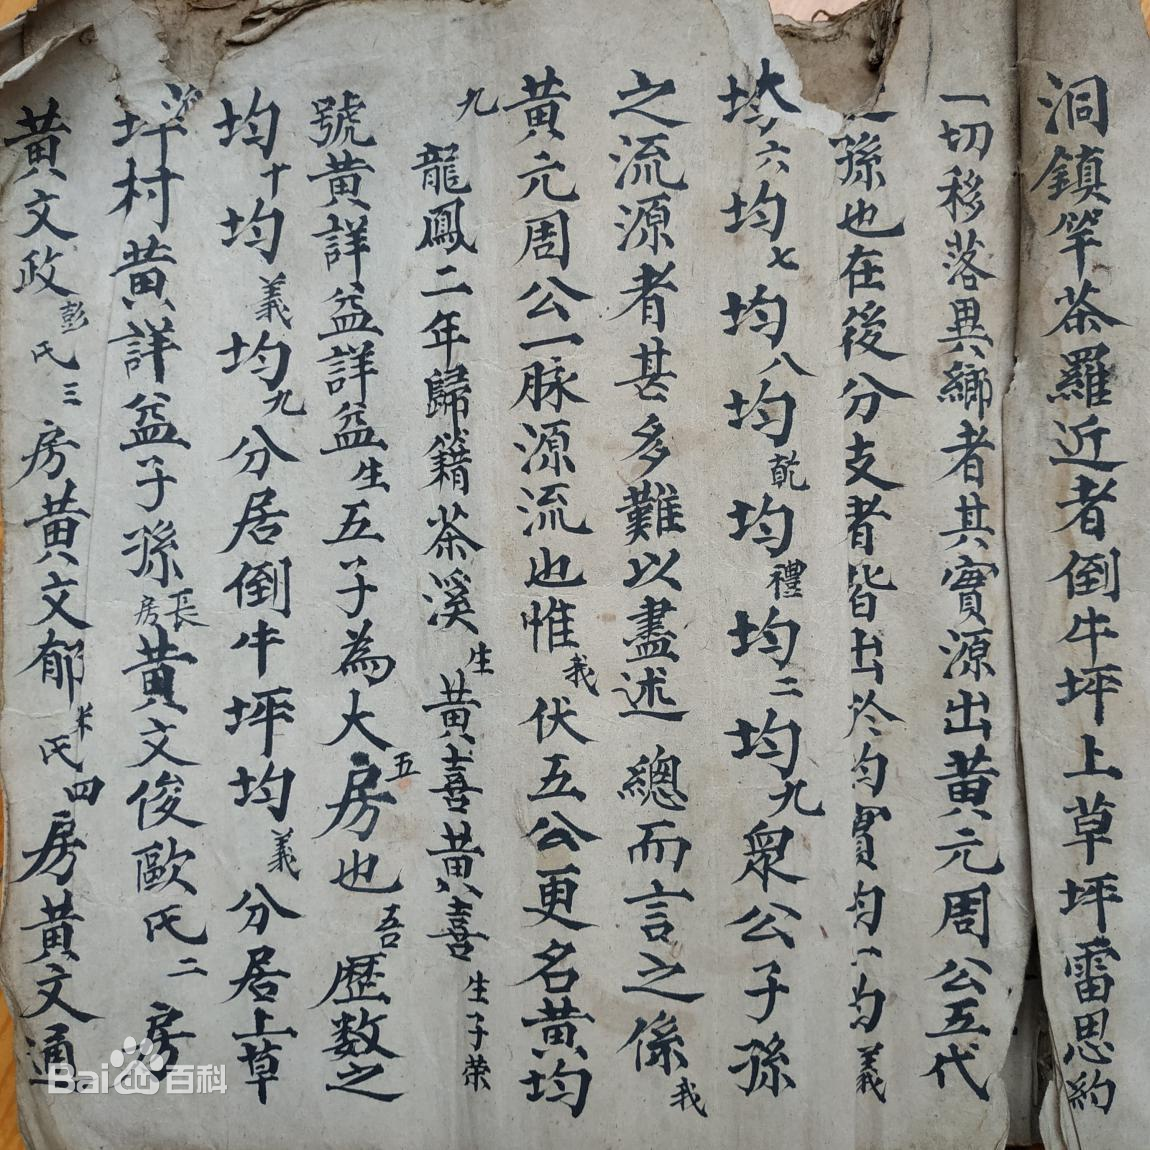 洞鎮竿茶羅近者倒牛坪上草坪雷思約
一切移落異鄉者其實源出黃元周公五代
孫也在後分支者皆出於均實均一均義
均六均七均八均乾均禮均二均九衆公子孫
之流源者甚多難以盡述總而言之係我
黃元周公一脉源流也惟我伏五公更名黃均
九龍鳳二年歸籍茶溪生黃喜黃喜生子荣
號黃詳益詳益生五子為大五房也吾歷数之
均十均義均九分居倒牛坪均義分居上草
坪村黃詳益子孫長房黃文俊歐氏二房
黃文政彭氏三房黃文郁米氏四房黃文通
Baidu百科